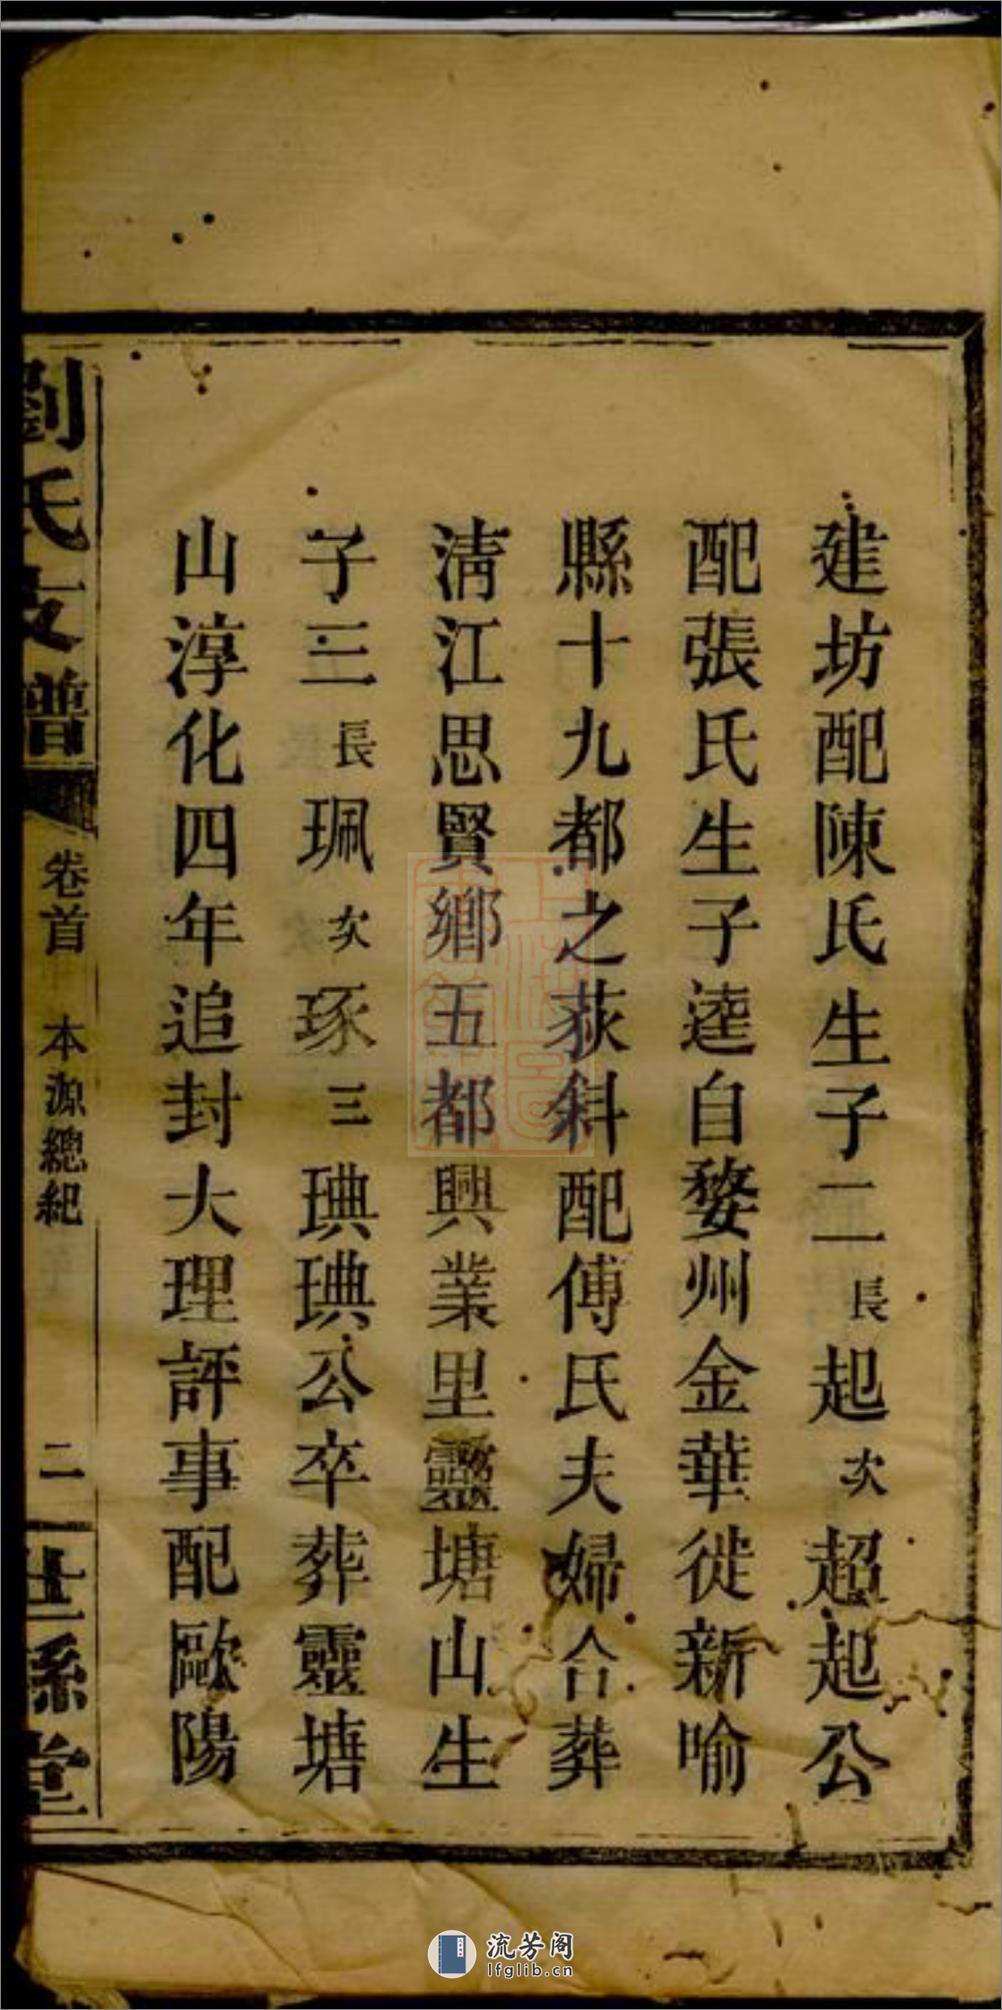 建坊配陳氏生子二長起次超起公
配張氏生子逵自婺州金華徙新喻
縣十九都之荻斜配傅氏夫婦合葬
清江思賢鄉五都興業里靈塘山生
子三長珮次琢三琠琠公卒葬靈塘
山淳化四年追封大理評事配歐陽
劉氏支譜
卷首
本源總紀
二
流芳阁
lfglib.cn